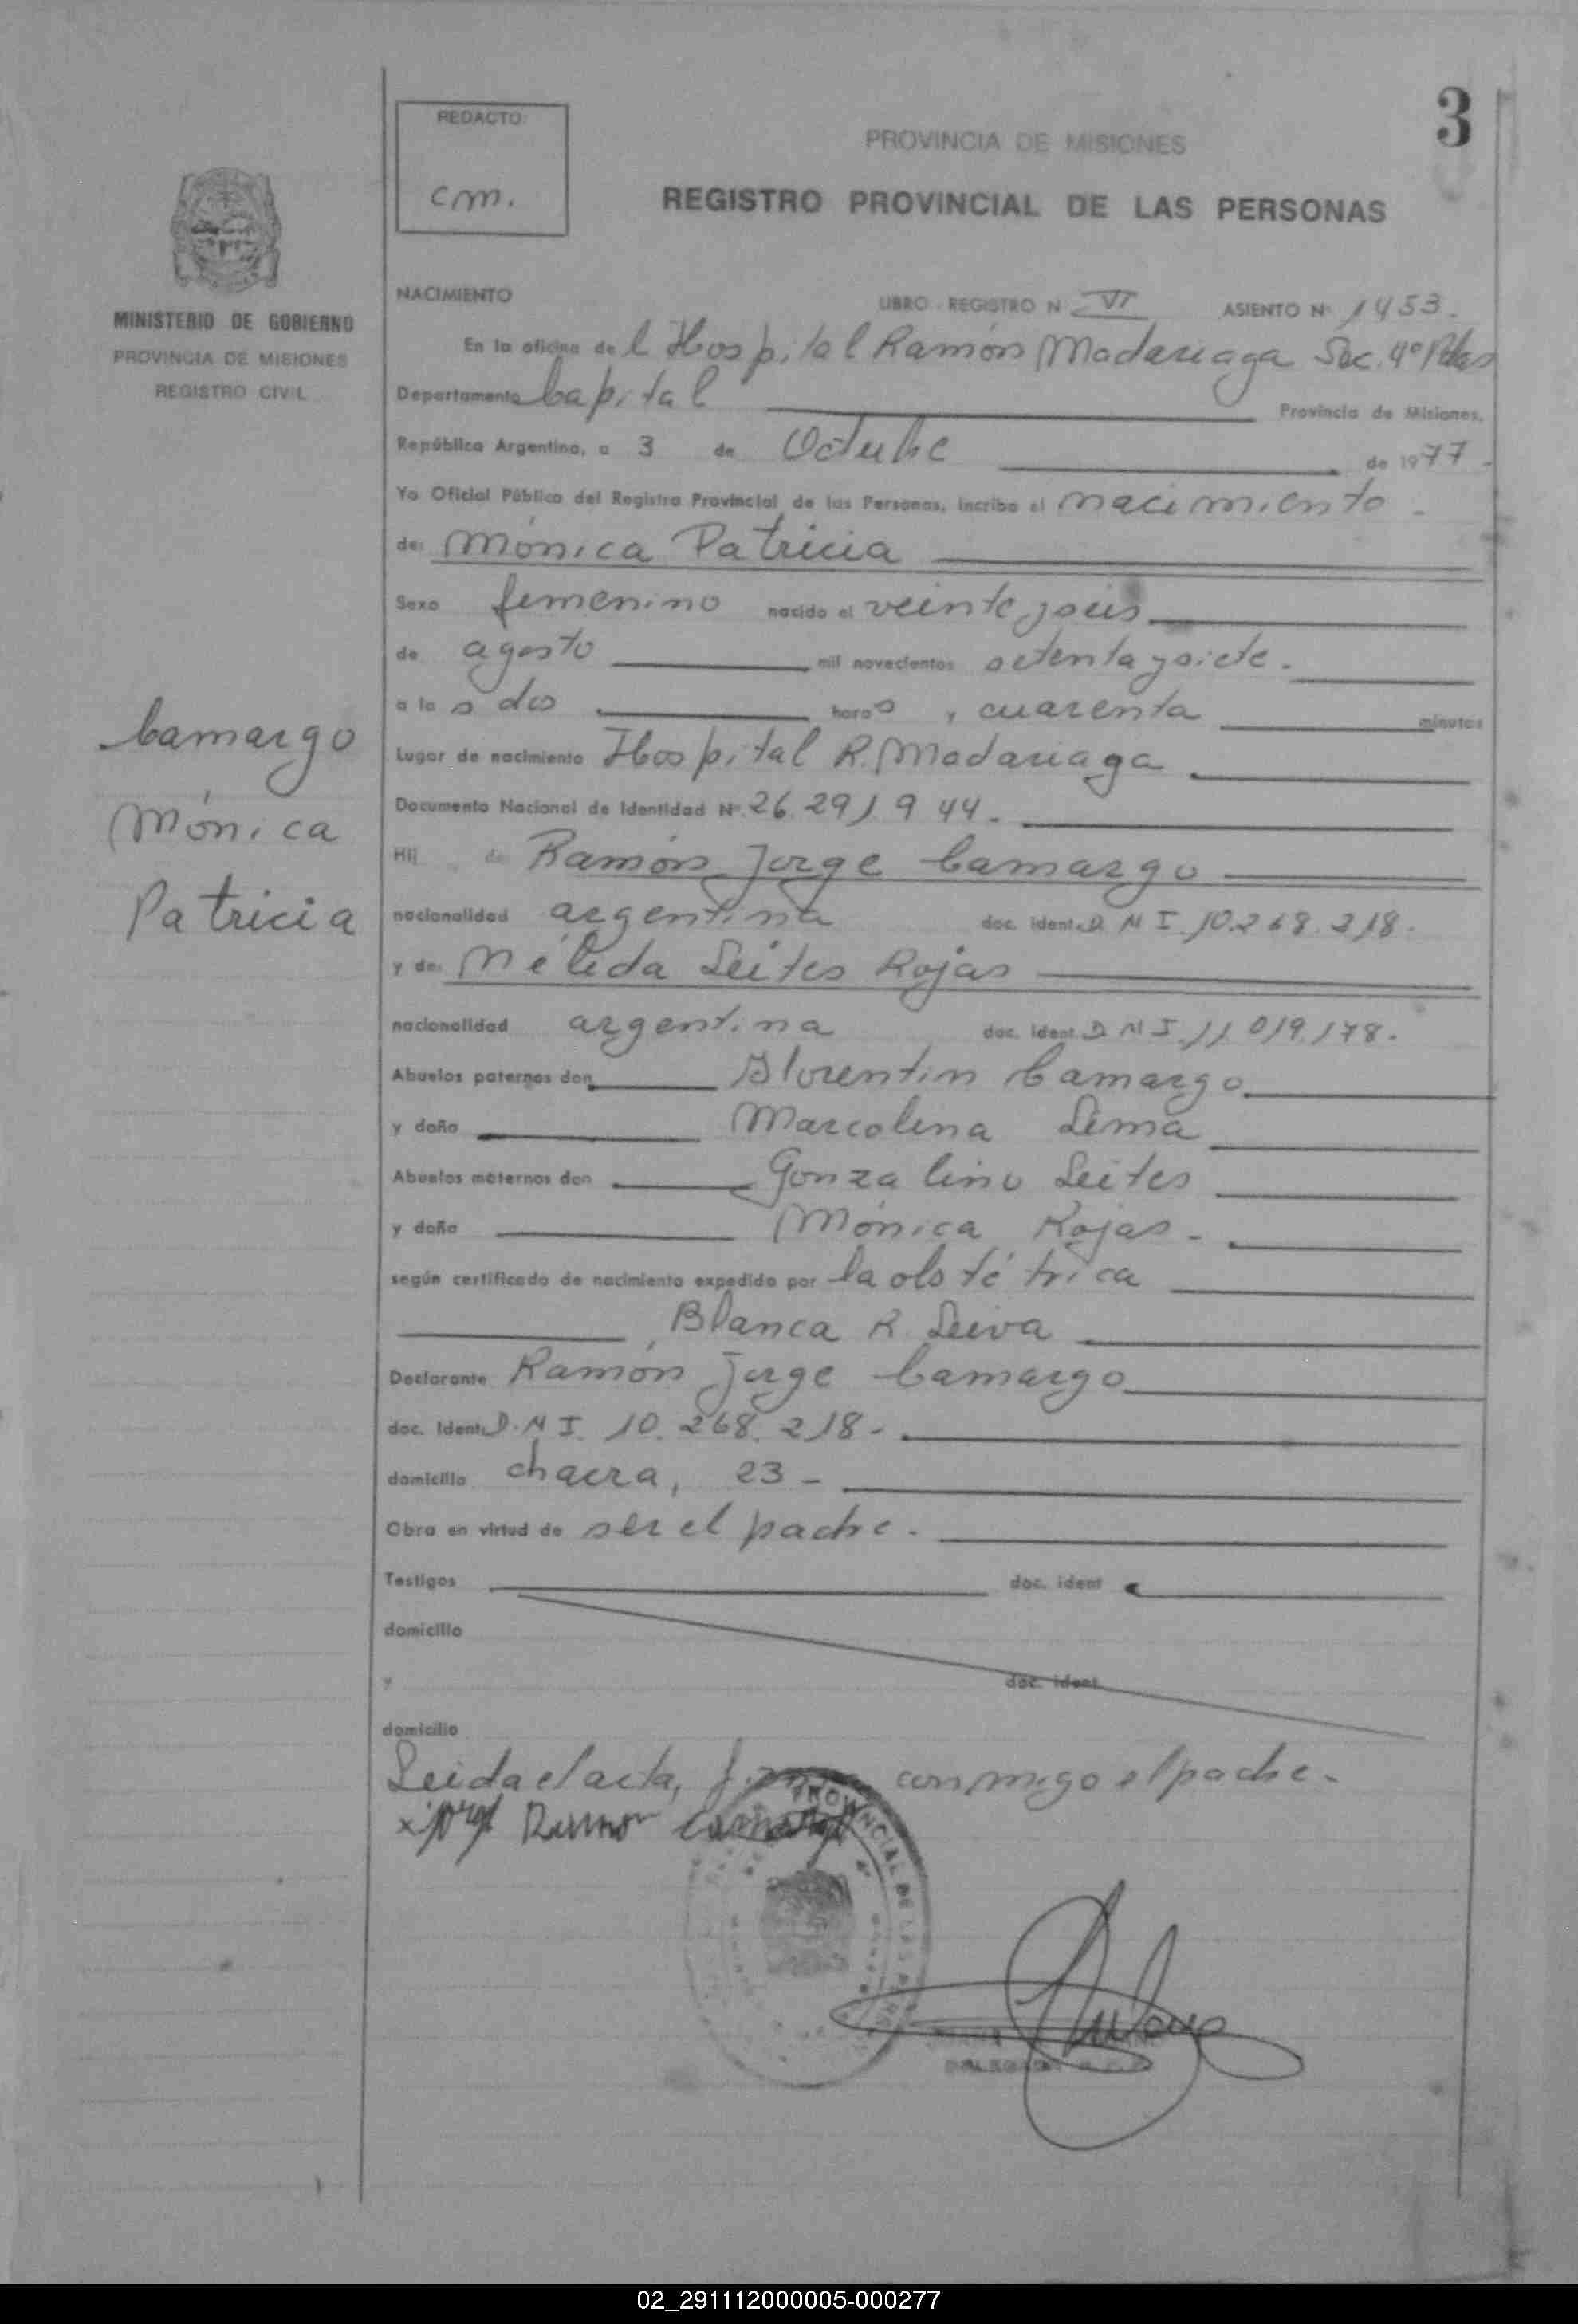 3
REDACTO:
cm.
PROVINCIA DE MISIONES
REGISTRO PROVINCIAL DE LAS PERSONAS
MINISTERIO DE GOBIERNO
PROVINCIA DE MISIONES
REGISTRO CIVIL
NACIMIENTO LIBRO REGISTRO N VI ASIENTO Nº 1453.
En la oficina del Hospital Ramón Madariaga Sec. 4º Pdas
Departamento Capital Provincia de Misiones,
República Argentina, a 3 de Octubre de 1977-
Yo Oficial Público del Registro Provincial de las Personas, incribo el nacimiento -
de: Mónica Patricia
Sexo femenino nacido el veinte y seis
de agosto mil novecientos setenta y siete.
a la s dos horas y cuarenta minutos
Lugar de nacimiento Hospital R. Madariaga
Documento Nacional de Identidad Nº 26.291.944-
Hij de Ramón Jorge Camargo
nacionalidad argentina doc. ident. D N I. 10.268.218.
y de: Mélida Leites Rojas
nacionalidad argentina doc. ident. D N I. 11.019.178.
Abuelos paternos don Florentin Camargo
y doña Marcolina Lima
Abuelos maternos don Gonzalino Leites
y doña Mónica Rojas-
según certificado de nacimiento expedido por la obstétrica
Blanca R. Leiva
Declarante Ramón Jorge Camargo
doc. Ident. D.N I. 10.268.218-
domicilio chacra, 23-
Obra en virtud de ser el padre.
Testigos doc. ident
domicilio
y doc. ident.
domicilio
Leida el acta, firma conmigo el padre-
Camargo
Mónica
Patricia
x Jorge Ramon Camargo
PROVINCIAL DE LAS PERS
DELEGADA
02_291112000005-000277